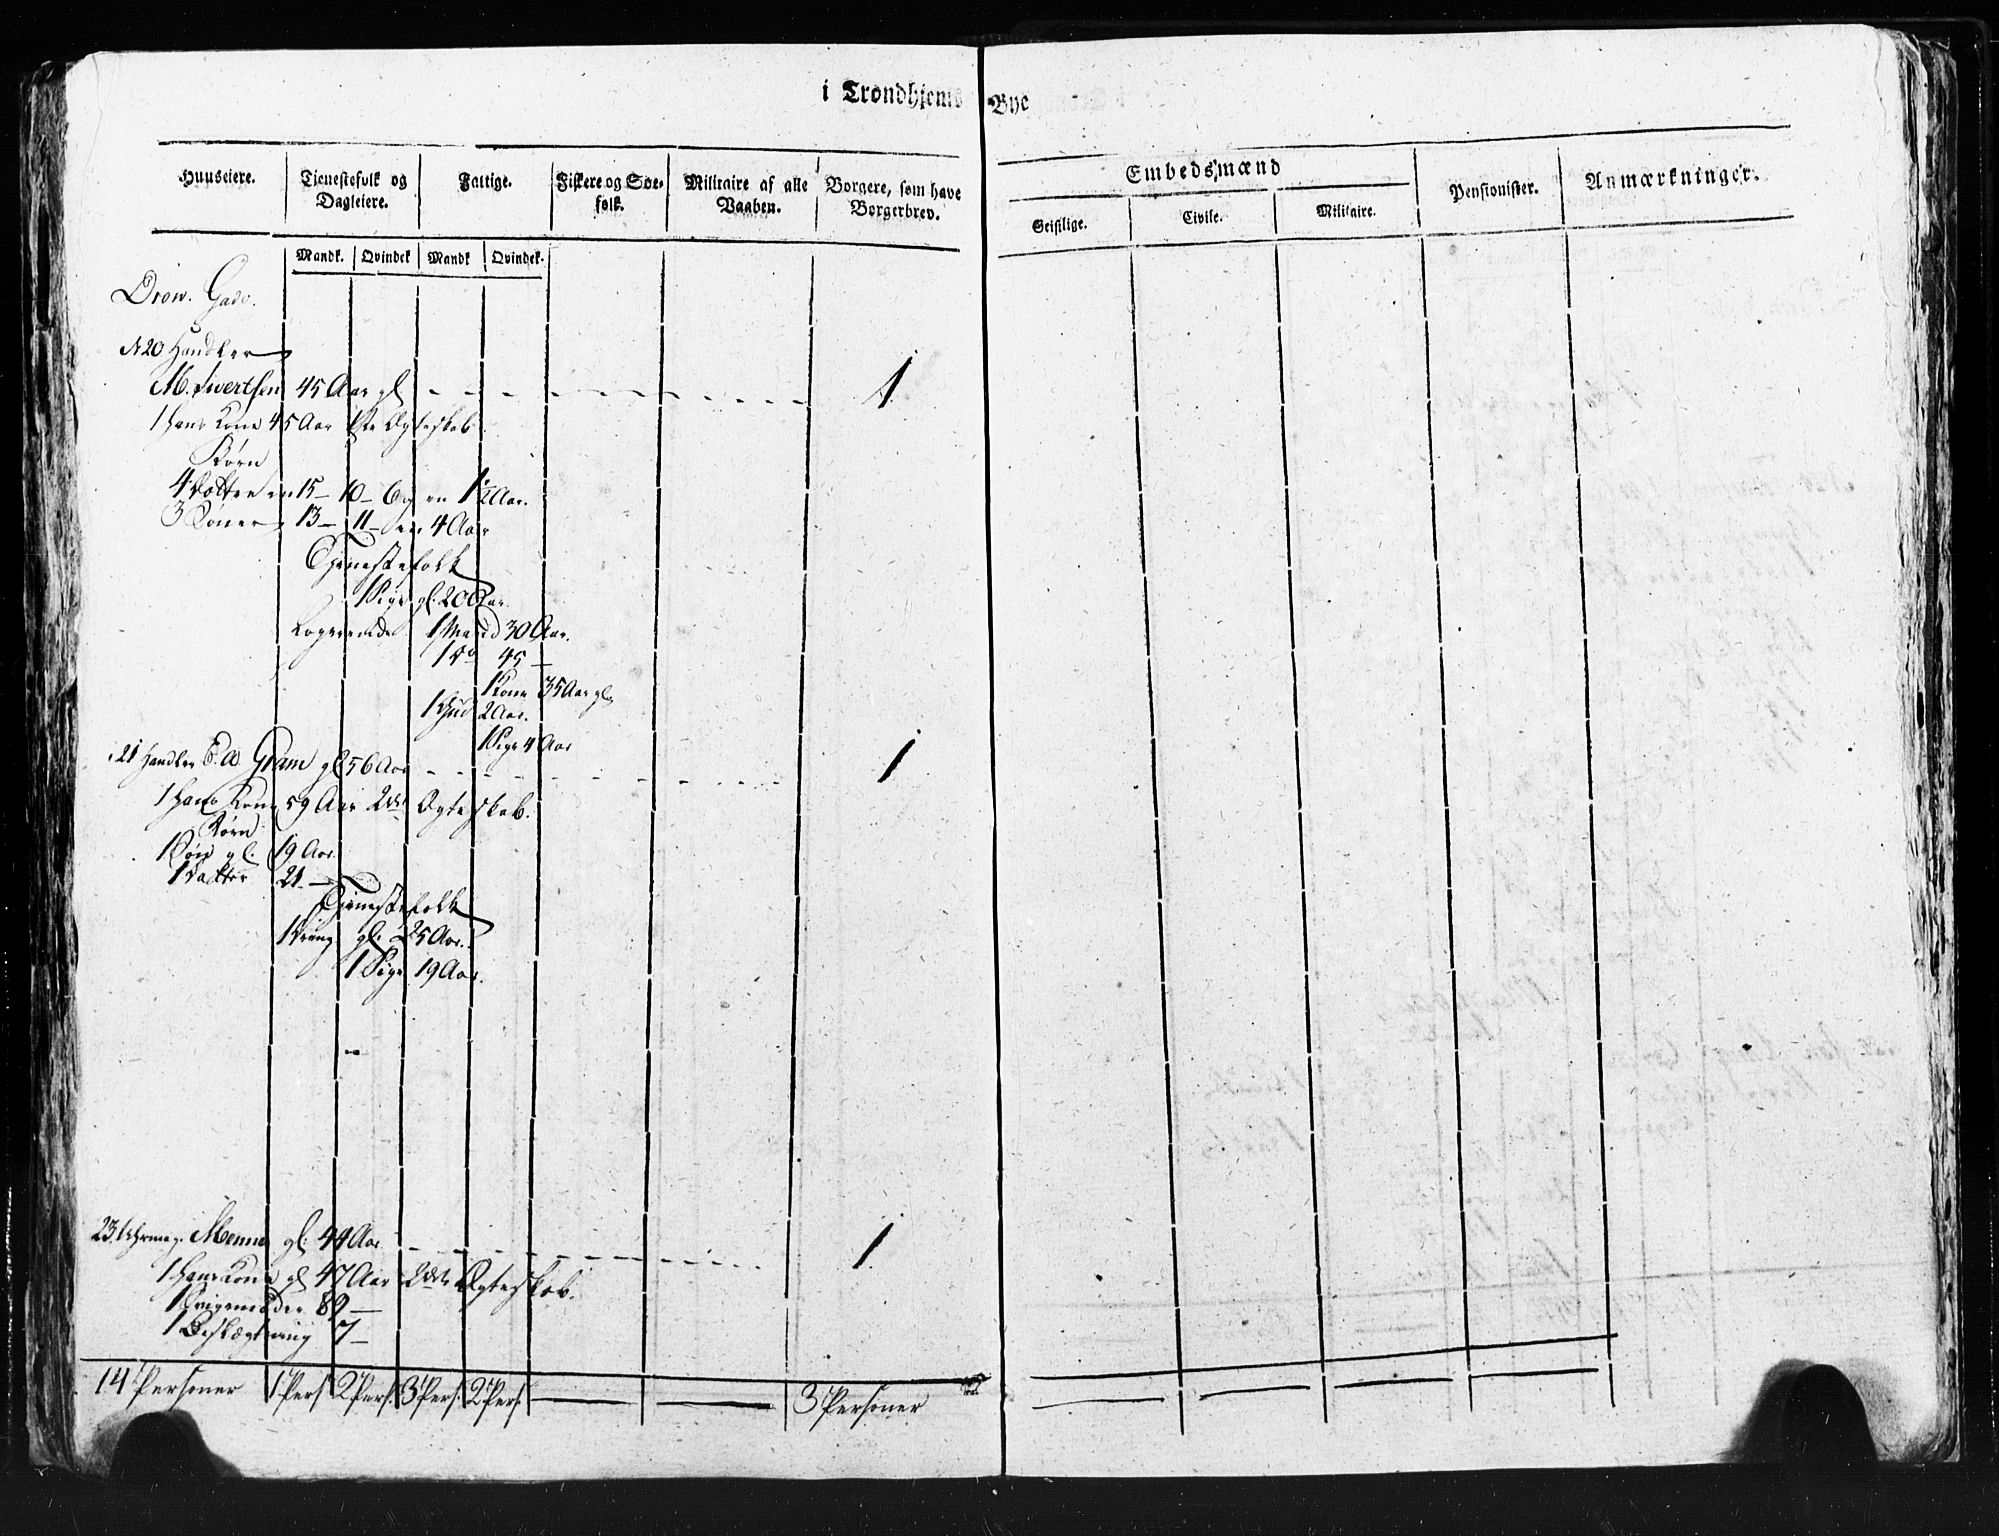 i Trondhjems Bye
Huuseiere. Tienestefolk og Dagleiere. Fattige. Fiskere og Søe-folk. Militaire af alle Vaaben. Borgere, som have Borgerbrev. Embedsmænd Pensionister. Anmærkninger.
Geistlige. Civile. Militaire.
Mandk. Qvindek Mandk Qvindek.
Dron. Gade.
N 20 Handler
M. Ivertsen 45 Aar gl 1
1 Hans Kone 45 Aar 1ste Egteskab
Børn
4 Døttre en 15 – 10 – 6 og en 1½ Aar.
3 Sønner 13 – 11 – en 4 Aar
Tjenestefolk
1 Pige gl. 20 Aar.
Logerende 1 Mand 30 Aar.
1 do 45 –
1 Kone 35 Aar gl
2 Aar.
1 Pige 4 Aar
21 Handler Gram gl 56 Aar 1
1 Hans Kone 59 Aar 2det Egteskab.
Børn
1 Søn gl. 19 Aar.
1 Datter 21 –
Tjenestefolk
1 Dreng gl. 25 Aar.
1 Pige 19 Aar.
23. Uhrmag. Menne gl. 44 Aar 1
1 Hans Kone gl 47 Aar 2det Egteskab.
1 Svigemoder 89 –
1 Beslægtning 7 –
14 Personer 1 Pers 2 Pers. 3 Pers. 2 Pers. 3 Personer